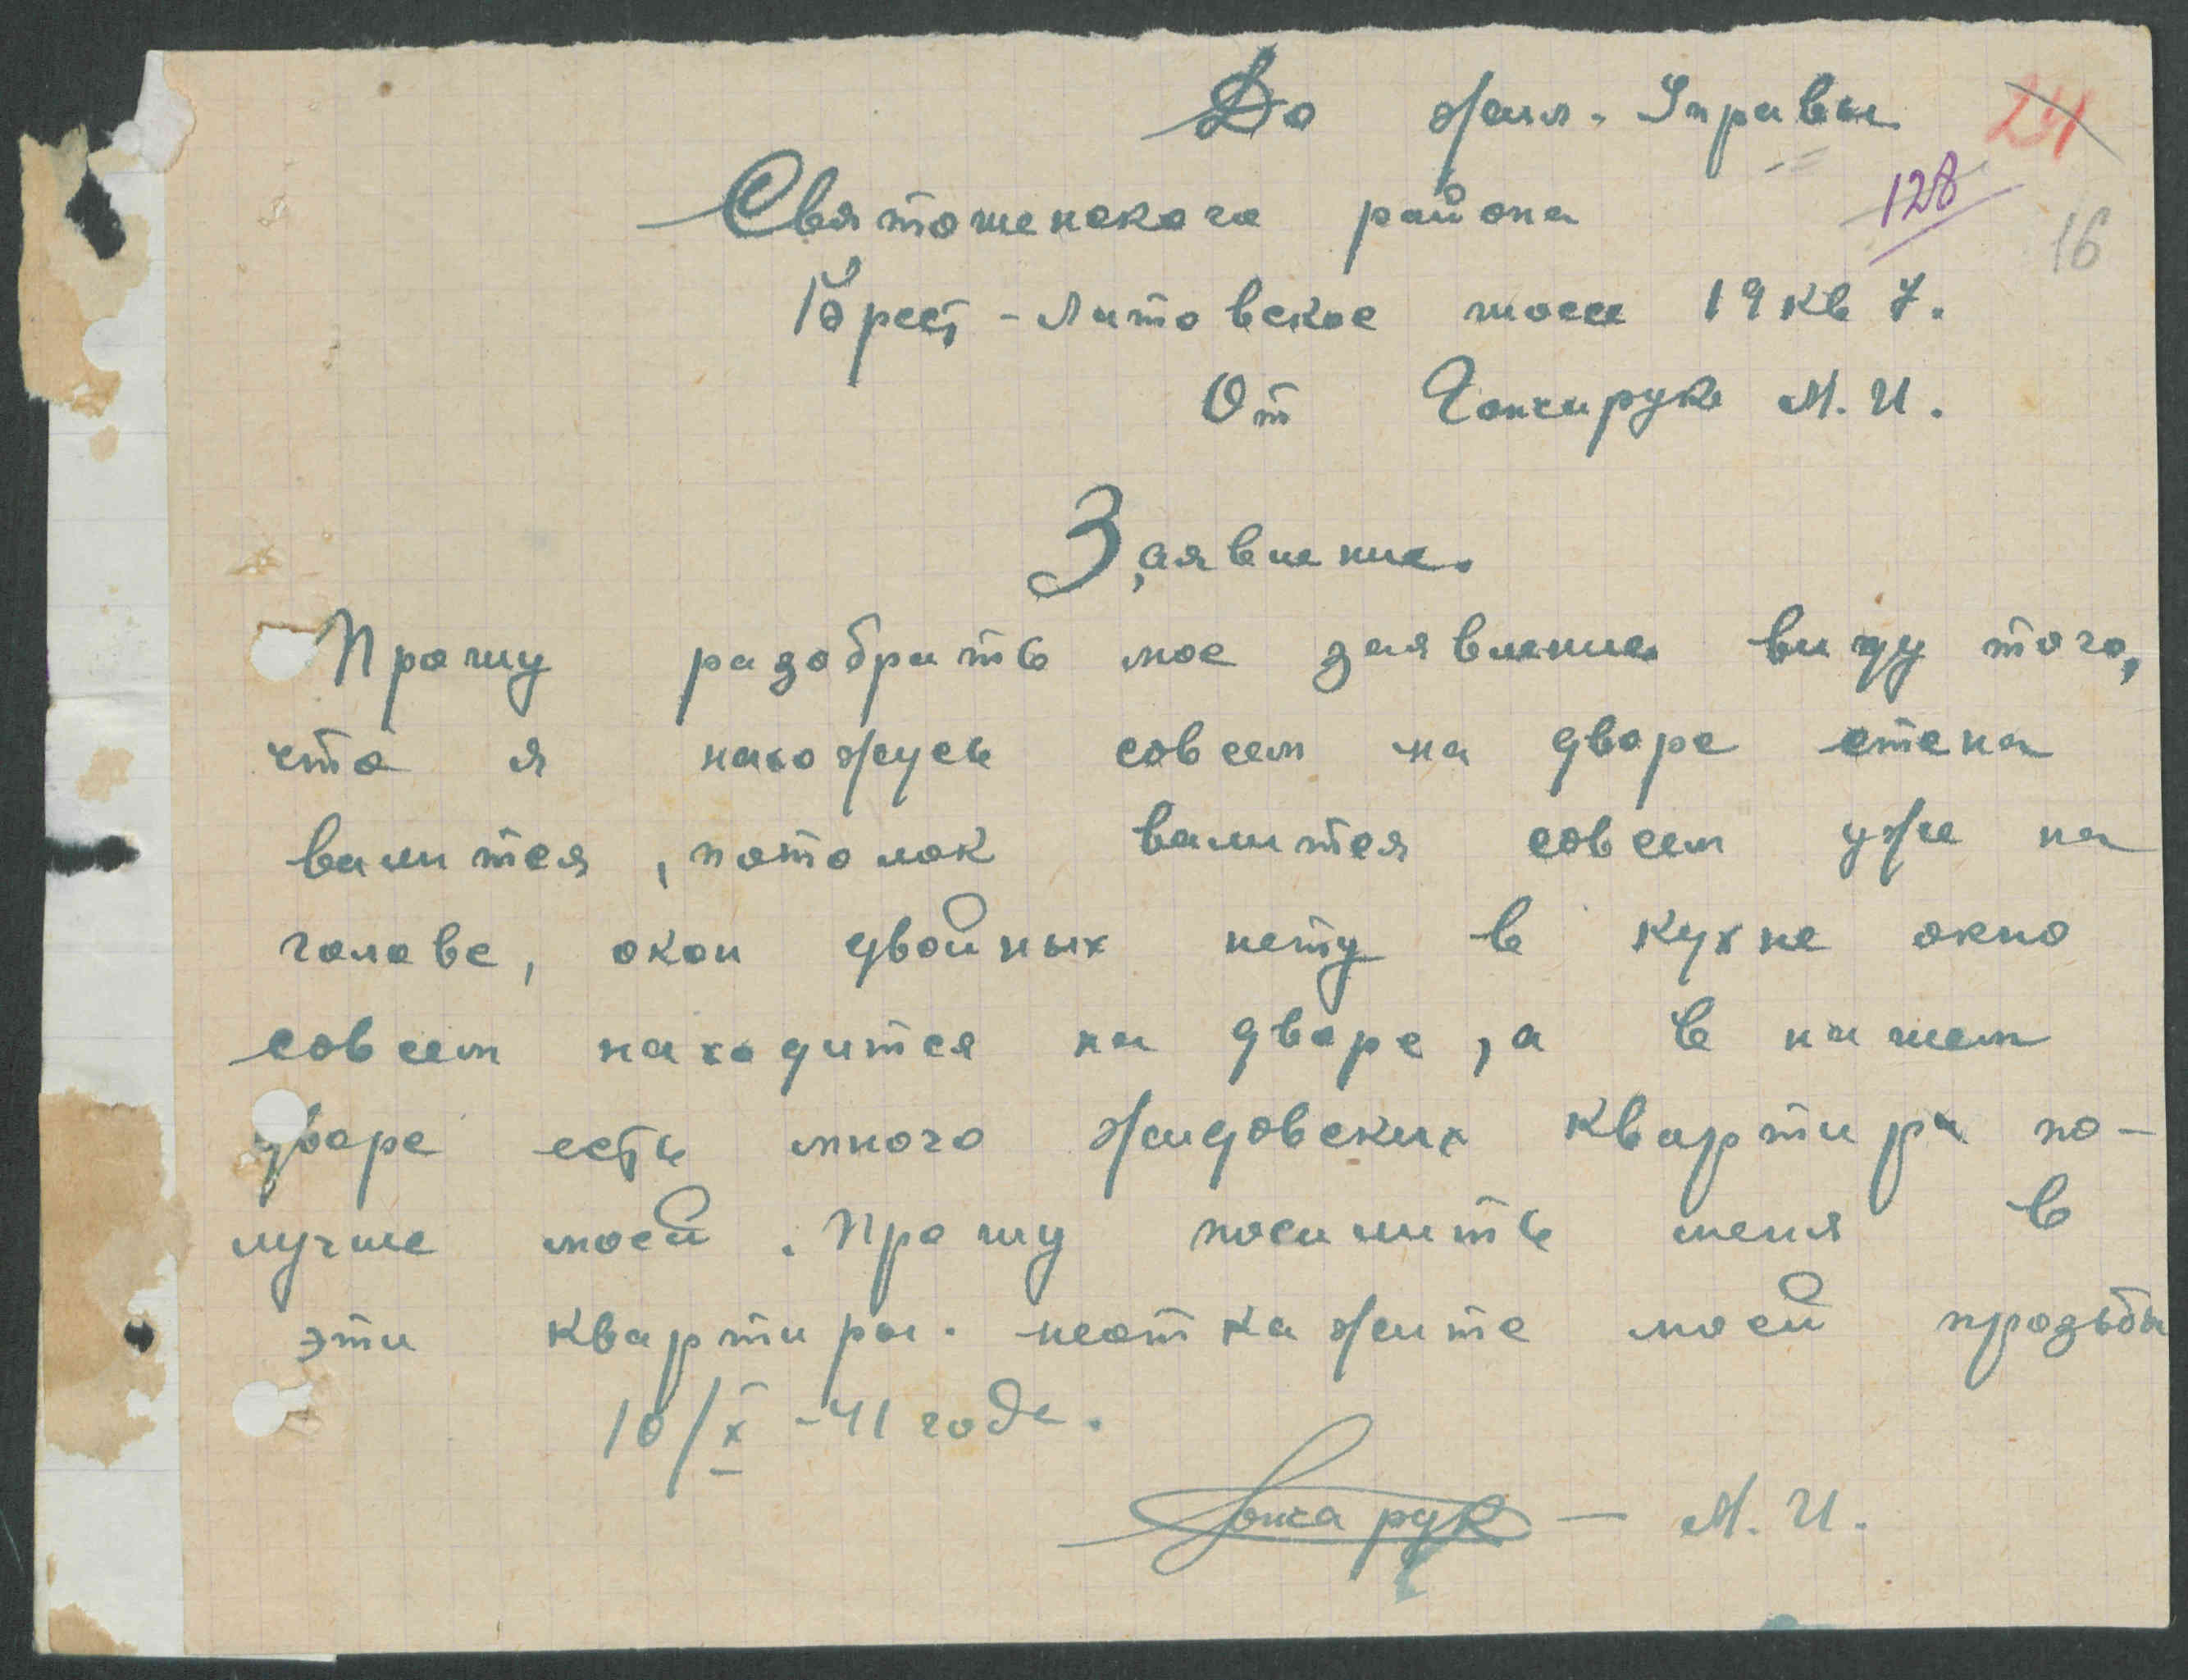 До жил. Управы
24
128
16
Святошенского района
Брест-Литовское шоссе 19 кв 7.
От Гончарука М. И.
Заявление.
Прошу разобрать мое заявление виду того,
что я нахожусь совсем на дворе стена
валится, потолок валится совсем уже на
голове, окон двойных нету в кухне окно
совсем находится на дворе, а в нашем
дворе есть много жидовских квартир по-
лучше моей. Прошу поселить меня в
эти квартиры. неоткажите моей прозьбы
10/X -41 года.
Гончарук — М. И.